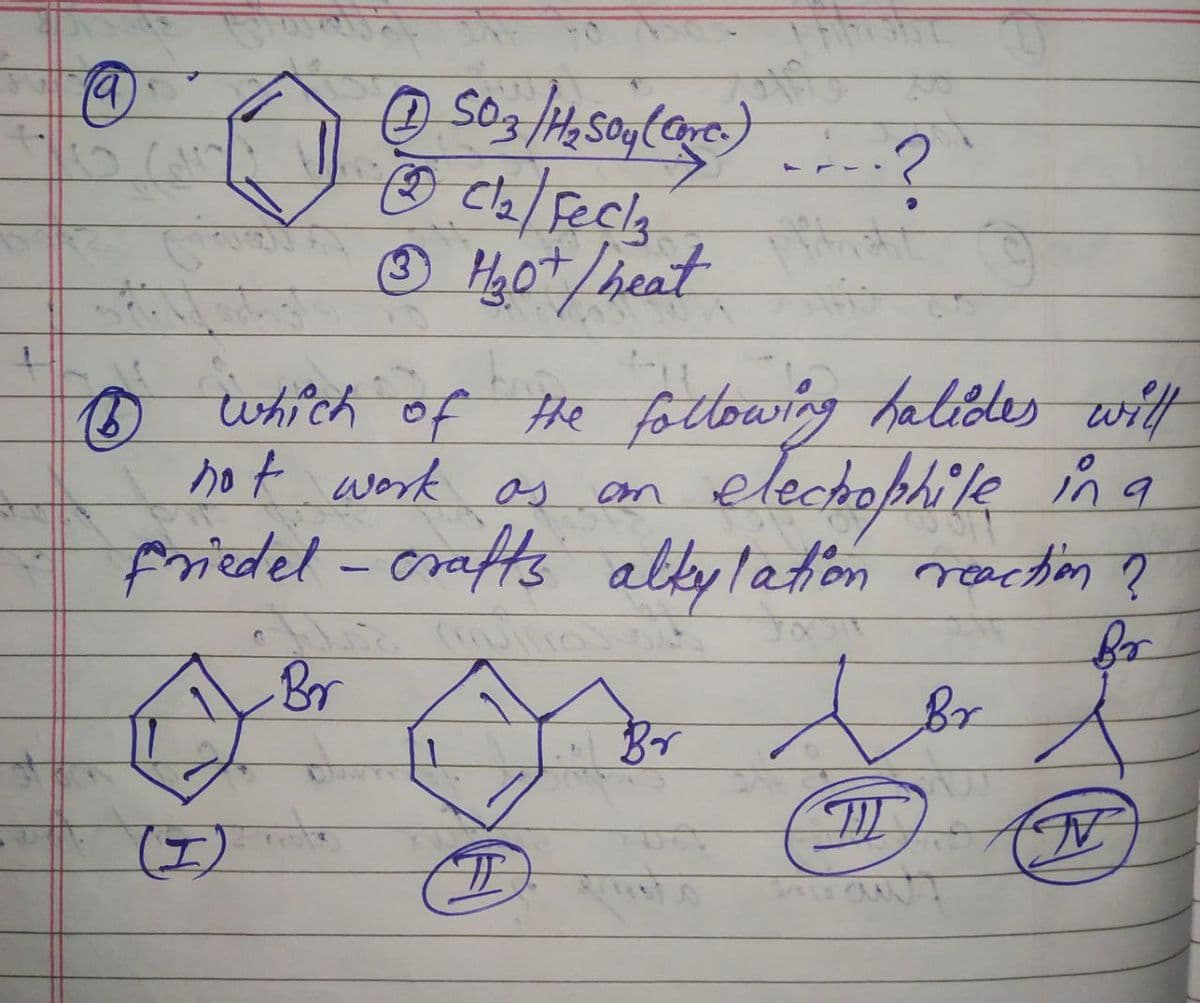 (a) ① SO3/H2SO4(Conc.)
----?
② Cl2/FeCl3
③ H3O+/heat
(b) which of the following halides will
not work as an electrophile in a
friedel - crafts alkylation reaction ?
Br Br Br Br
(I) II III IV